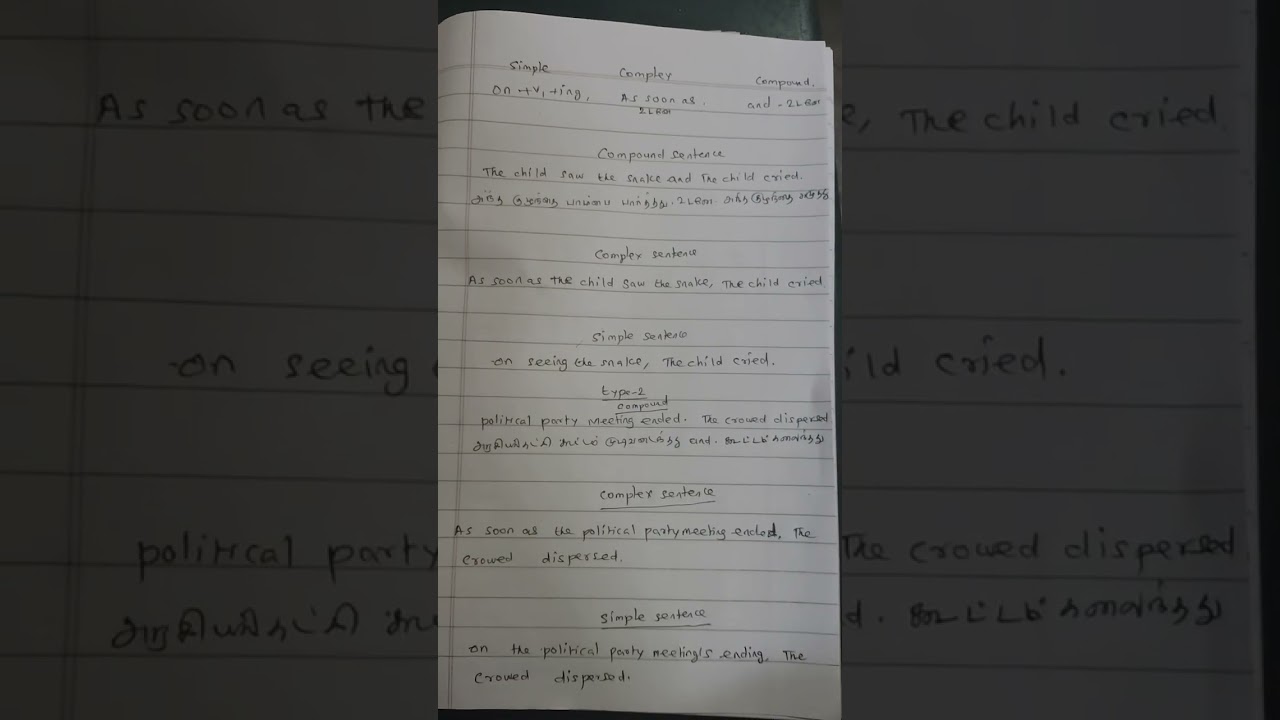 Simple Complex Compound.
on +V1 +ing, As soon as. and - உடனே
உடனே
Compound sentence
The child saw the snake and The child cried.
அந்த குழந்தை பாம்பை பார்த்தது. உடனே அந்த குழந்தை அழுதது
Complex sentence
As soon as the child saw the snake, The child cried
simple sentence
on seeing the snake, The child cried.
type-2
compound
political party meeting ended. The crowed dispersed
அரசியல்கட்சி கூட்டம் முடிவடைந்தது and. கூட்டம் கலைந்தது
complex sentence
As soon as the political party meeting ended, The
crowed dispersed.
simple sentence
on the political party meeting's ending, The
crowed dispersed.